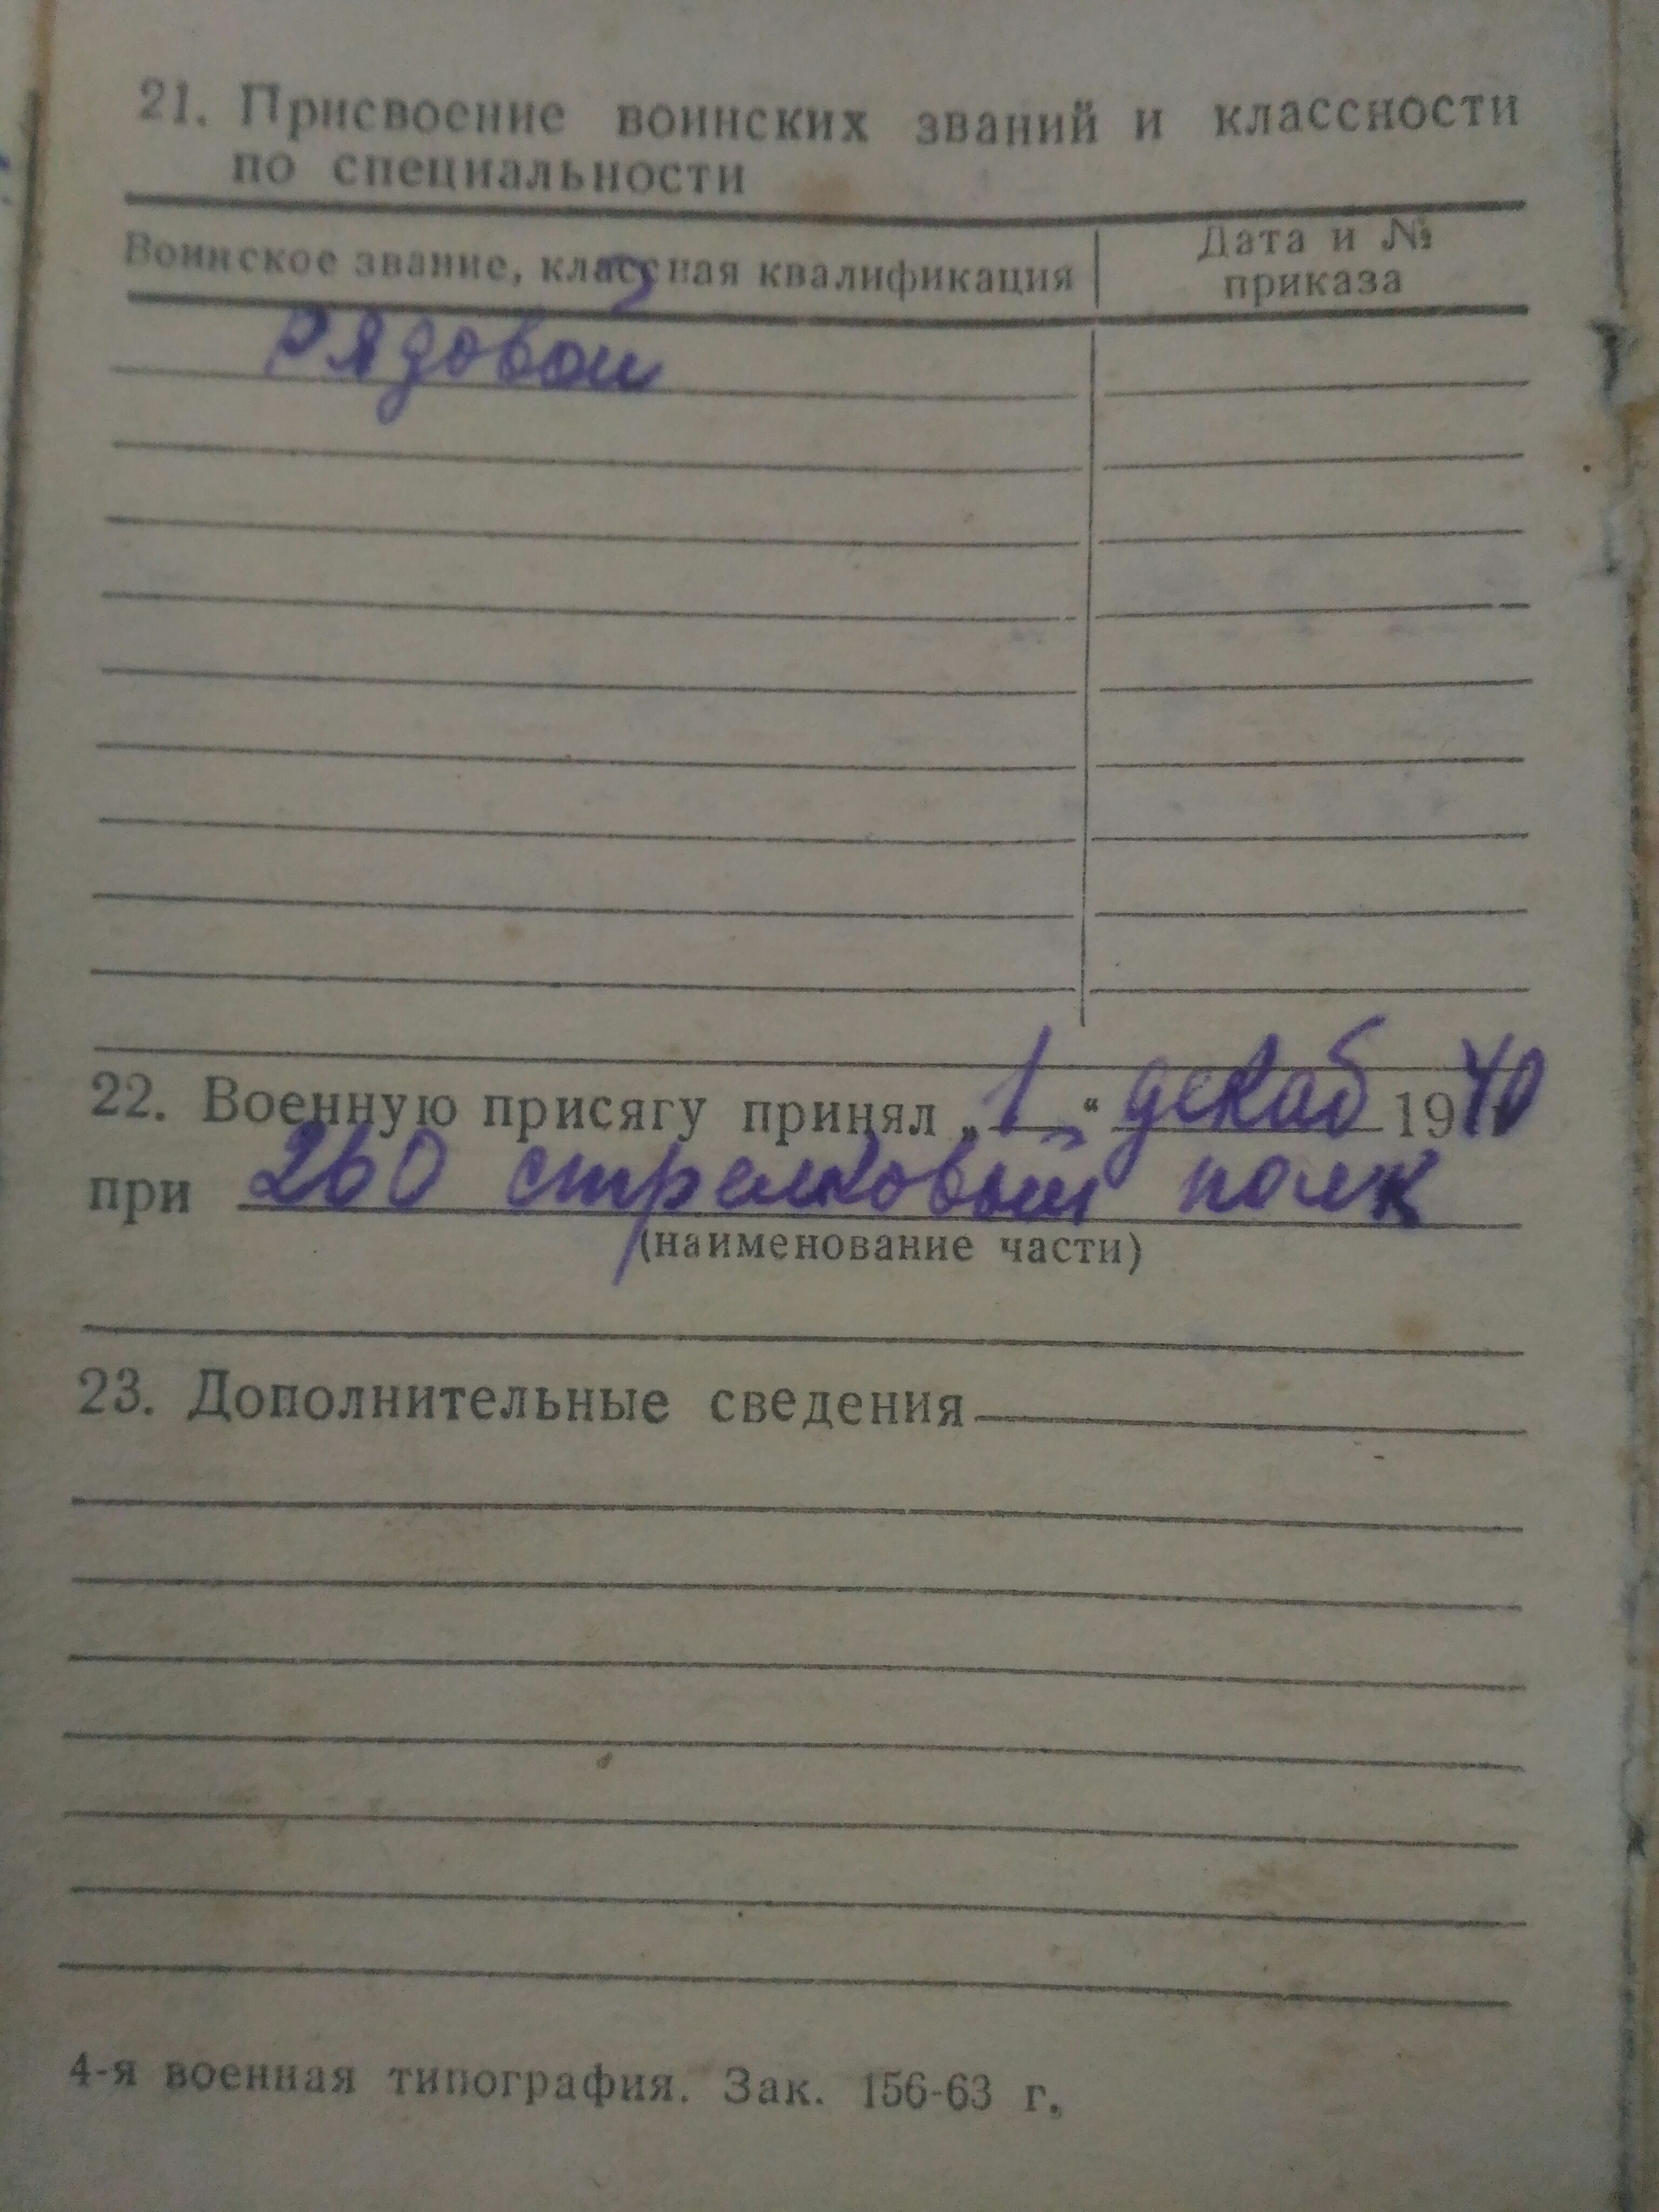 21. Присвоение воинских званий и классности
по специальности
Воинское звание, классная квалификация
Дата и №
приказа
Рядовой
22. Военную присягу принял „1“ декаб 1940
при 260 стрелковый полк
(наименование части)
23. Дополнительные сведения
4-я военная типография. Зак. 156-63 г.